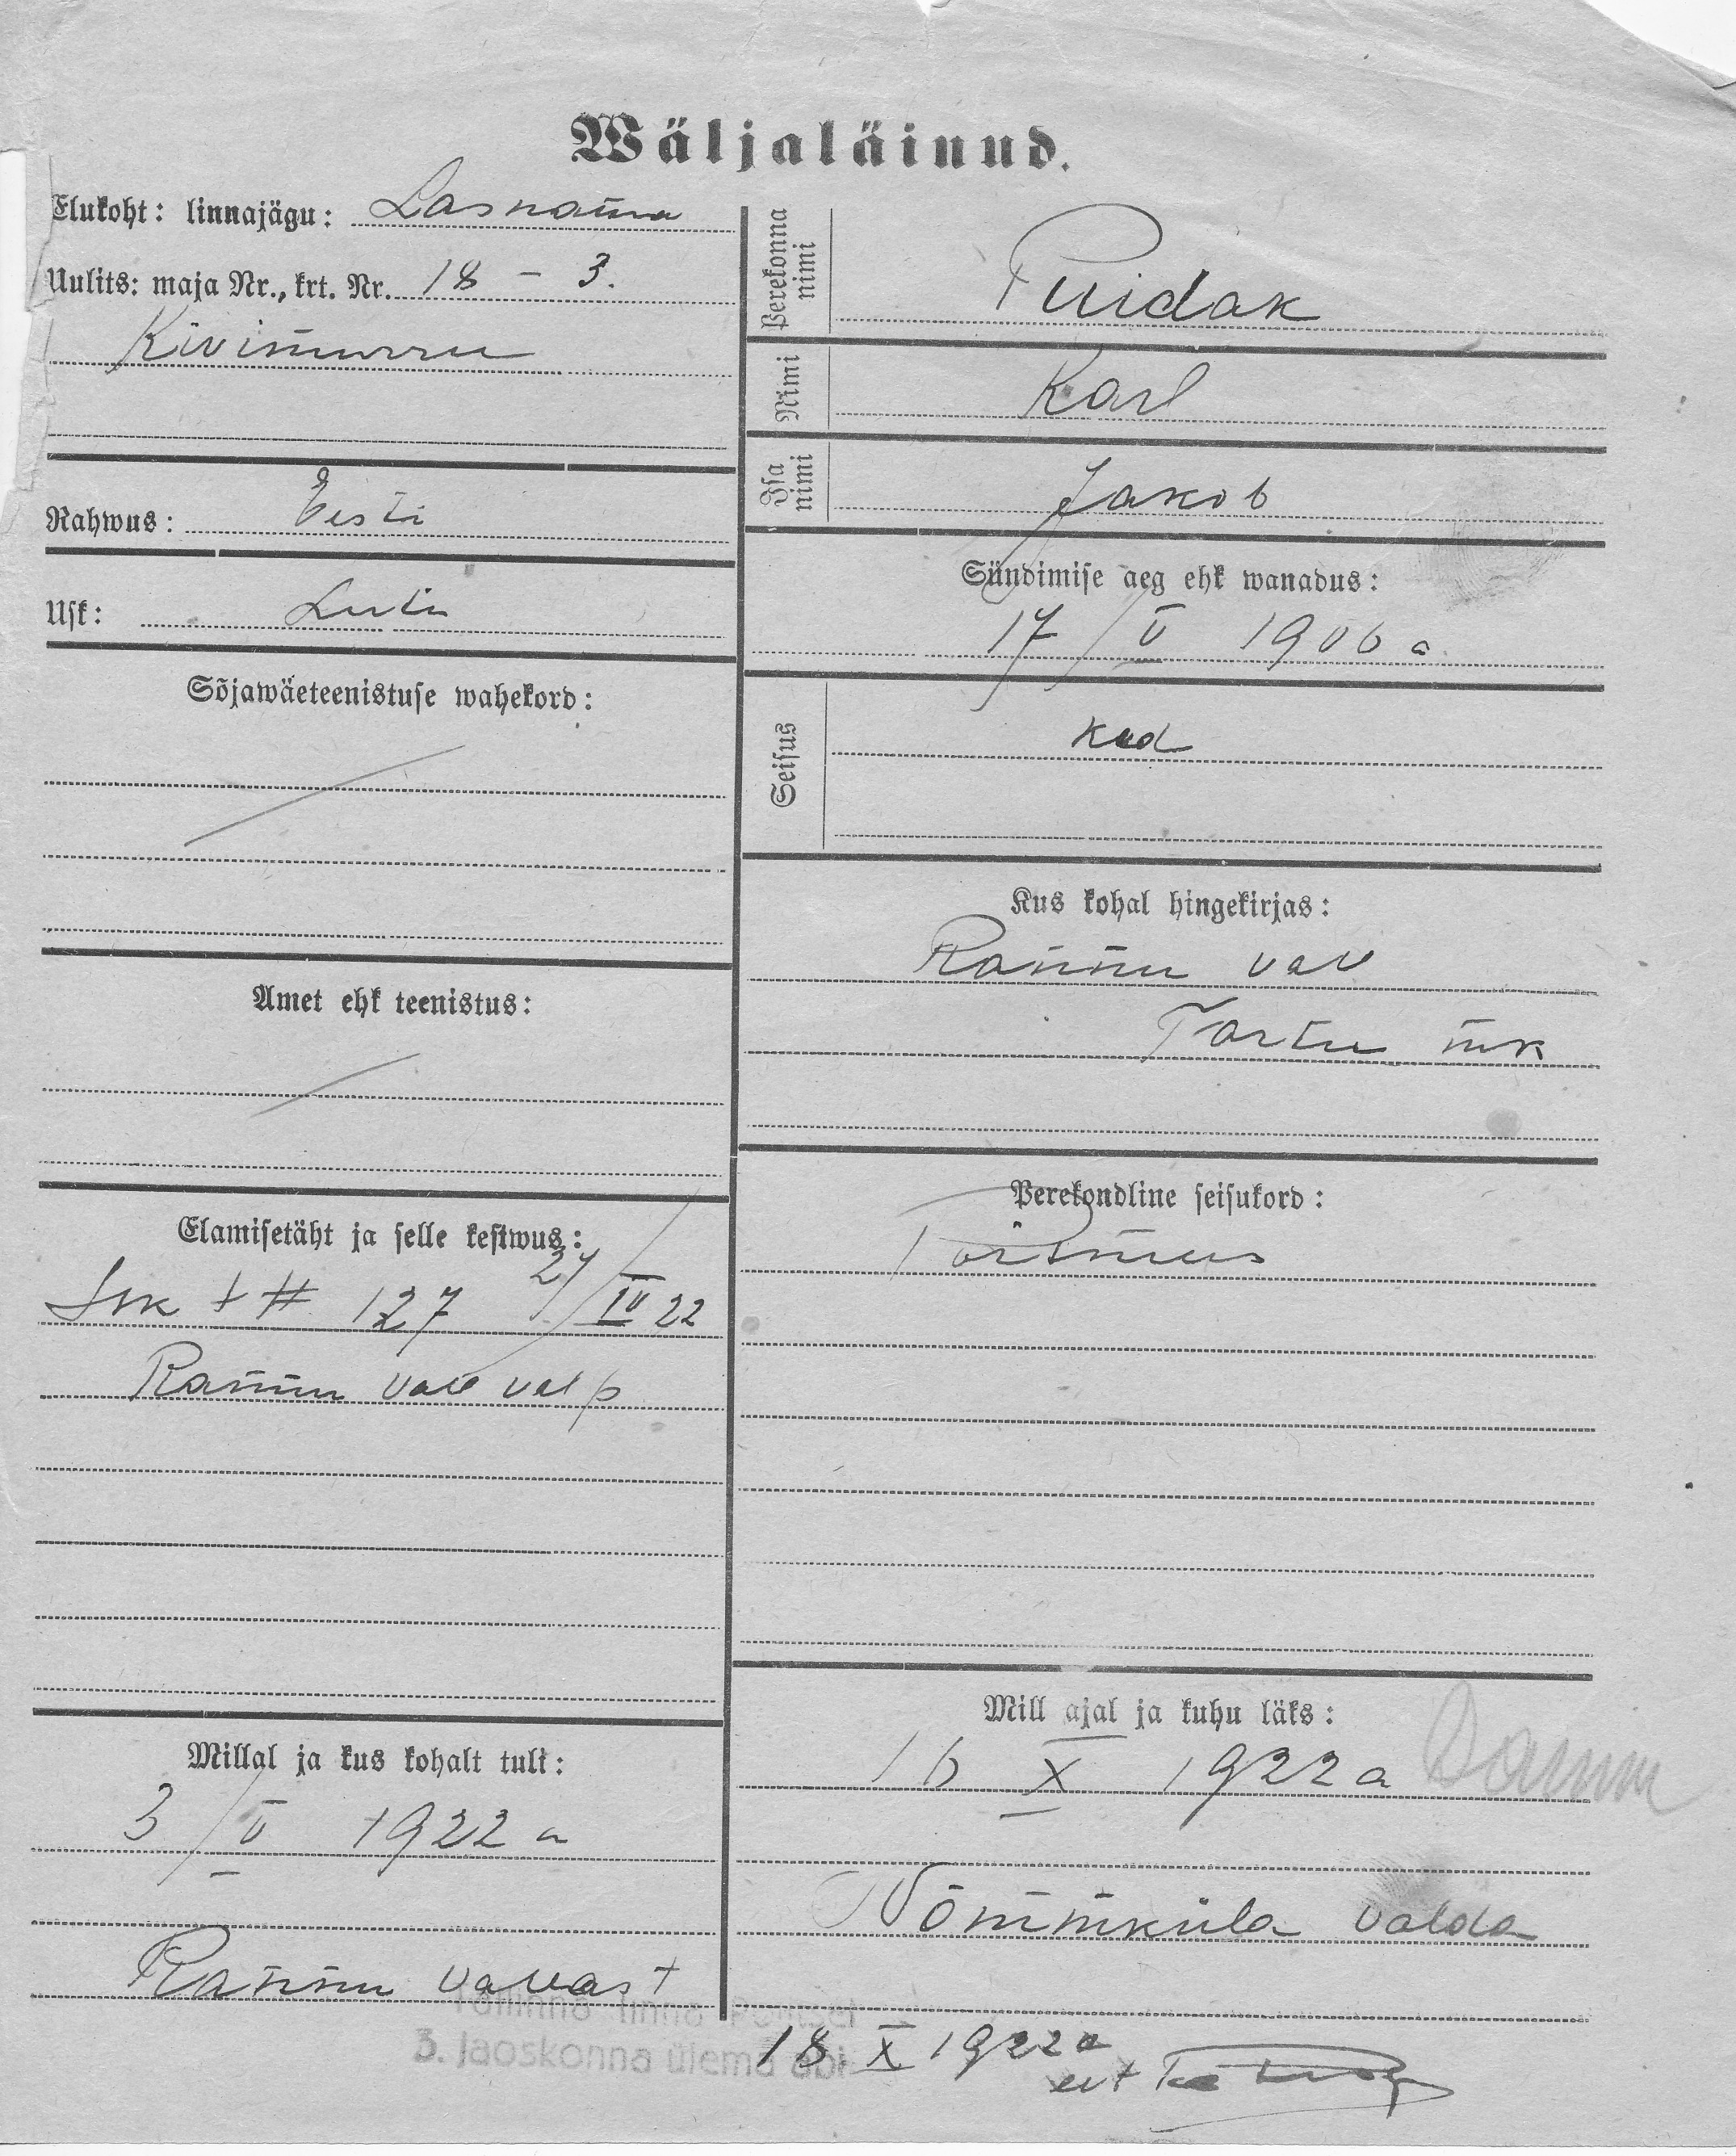 Wäljaläinud.
Elukoht: linnajägu: Lasnama
Uulits: maja Nr., krt. Nr. 18 – 3.
Kivimurru
Rahwus: Eesti
Usk: Lutu
Sõjawäeteenistuse wahekord:
Amet ehk teenistus:
Elamisetäht ja selle kestwus:
127 27/IV 22
Rannu vall val p
Millal ja kus kohalt tuli:
3/V 1922 a
Rannu vallast
Perekonna nimi
Puidak
Nimi
Karl
Isa nimi
Jakob
Sündimise aeg ehk wanadus:
17/V 1906 a
Seisus
kod
Kus kohal hingekirjas:
Rannu val
Tartu mk
Perekondline seisukord:
Poismees
Mill ajal ja kuhu läks:
16 X 1922 a
Nõmmküla valda
Tallinna linna Politsei
3. jaoskonna ülema abi
18. X 1922 a